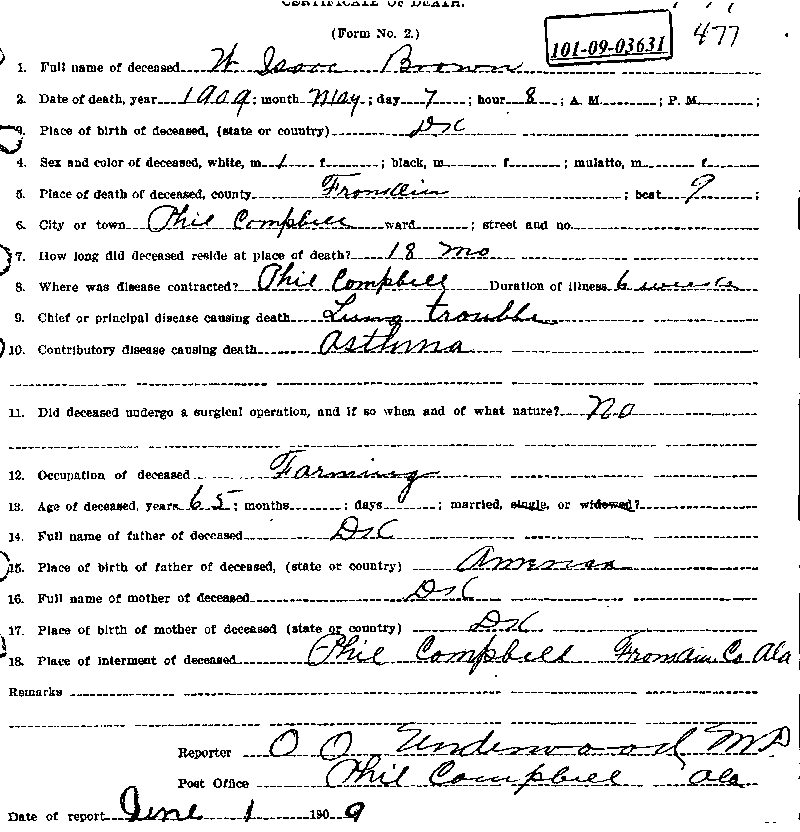 CERTIFICATE OF DEATH.
(Form No. 2.)
101-09-03631 477
1. Full name of deceased W Isaac Brown
2. Date of death, year 1909; month May; day 7; hour 8; A. M. ; P. M. ;
3. Place of birth of deceased, (state or country) DK
4. Sex and color of deceased, white, m 1 f ; black, m f ; mulatto, m f
5. Place of death of deceased, county Franklin ; beat 9 ;
6. City or town Phil Campbell ward ; street and no.
7. How long did deceased reside at place of death? 18 mo
8. Where was disease contracted? Phil Campbell Duration of illness 6 weeks
9. Chief or principal disease causing death Lung trouble
10. Contributory disease causing death Asthma
11. Did deceased undergo a surgical operation, and if so when and of what nature? No
12. Occupation of deceased Farming
13. Age of deceased, years 65; months ; days ; married, single, or widowed?
14. Full name of father of deceased DK
15. Place of birth of father of deceased, (state or country) America
16. Full name of mother of deceased DK
17. Place of birth of mother of deceased (state or country) DK
18. Place of interment of deceased Phil Campbell Franklin Co Ala
Remarks
Reporter O O Underwood MD
Post Office Phil Campbell Ala
Date of report June 1 1909